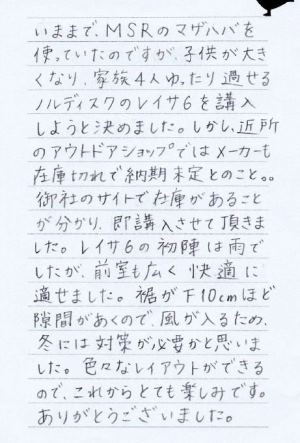 いままで、MSRのマザハバを
使っていたのですが、子供が大き
くなり、家族4人ゆったり過せる
ノルディスクのレイサ6を講入
しようと決めました。しかし、近所
のアウトドアショップではメーカーも
在庫切れで納期未定とのこと。。
御社のサイトで在庫があること
が分かり、即講入させて頂きま
した。レイサ6の初陣は雨で
したが、前室も広く快適に
過せました。裾が下10cmほど
隙間があくので、風が入るため、
冬には対策が必要かと思いま
した。色々なレイアウトができる
ので、これからとても楽しみです。
ありがとうございました。